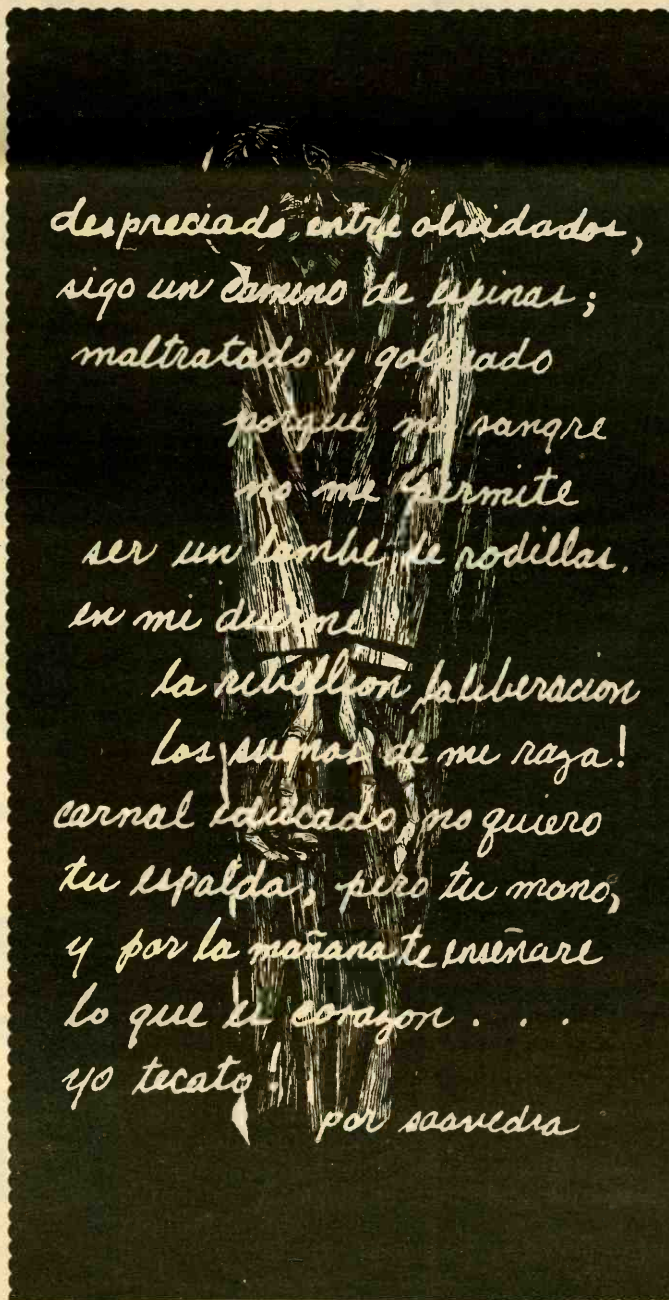 despreciado entre olvidados,
sigo un camino de espinas;
maltratado y golpeado
porque mi sangre
no me permite
ser un lambe de rodillas.
en mi duerme
la rebellion la liberacion
los sueños de mi raza!
carnal educado, no quiero
tu espalda, pero tu mano,
y por la mañana te enseñare
lo que es corazon . . .
yo tecato!
por saavedra